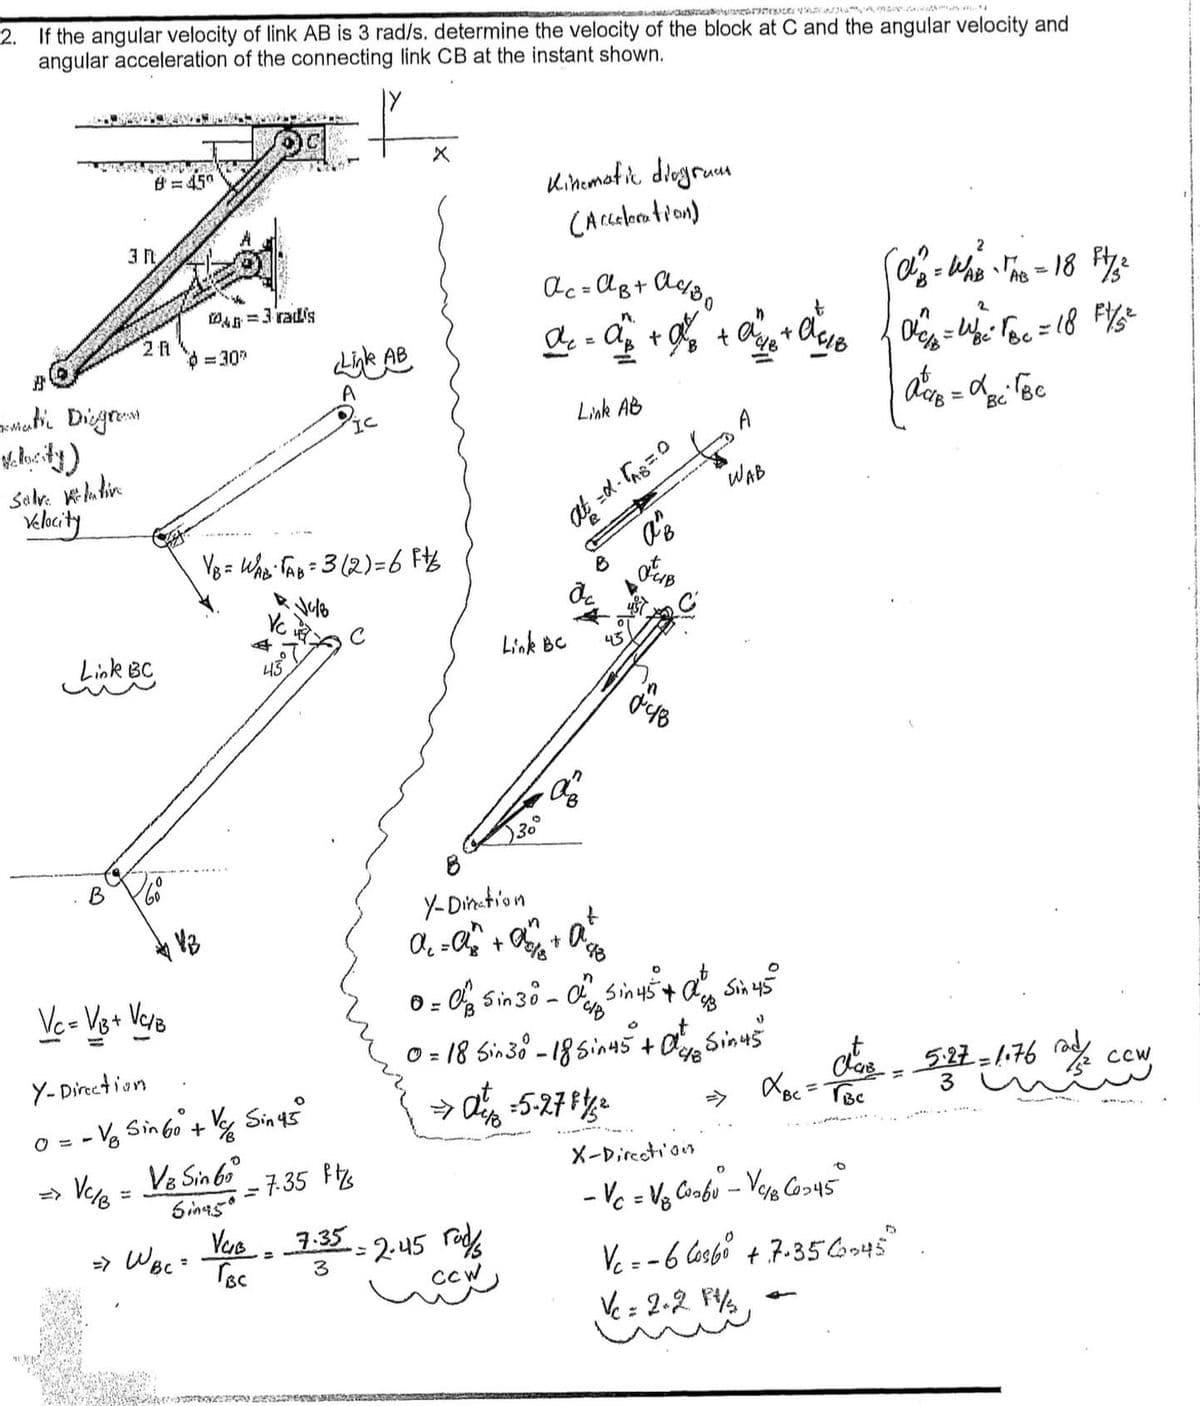 2. If the angular velocity of link AB is 3 rad/s. determine the velocity of the block at C and the angular velocity and
angular acceleration of the connecting link CB at the instant shown.
Y
X
C
θ = 45°
3 ft
A
ω_AB = 3 rad/s
2 ft
ϕ = 30°
B
Diagram
Velocity)
Solve Relative
Velocity
Link AB
A
IC
V_B = W_AB · r_AB = 3(2) = 6 Ft/s
V_C/B
V_C
45°
C
45°
Link BC
B
60°
V_B
V_C = V_B + V_C/B
Y-Direction
0 = - V_B Sin 60° + V_C/B Sin 45°
⇒ V_C/B = V_B Sin 60° / Sin 45° = 7.35 Ft/s
⇒ W_BC = V_C/B / r_BC = 7.35 / 3 = 2.45 rad/s
CCW
Kinematic diagram
(Acceleration)
a_C = a_B + a_C/B
a_C = a^n_B + a^t_B 0 + a^n_C/B + a^t_C/B
a^n_B = W²_AB · r_AB = 18 Ft/s²
a^n_C/B = W²_BC · r_BC = 18 Ft/s²
a^t_C/B = α_BC · r_BC
Link AB
A
W_AB
a^t_B = α · r_AB = 0
a^n_B
B
a^t_C/B
a_C
45°
C
Link BC
45°
a^n_C/B
a^n_B
30°
B
Y-Direction
a_C = a^n_B + a^n_C/B + a^t_C/B
0 = a^n_B Sin 30° - a^n_C/B Sin 45° + a^t_C/B Sin 45°
0 = 18 Sin 30° - 18 Sin 45° + a^t_C/B Sin 45°
⇒ a^t_C/B = 5.27 Ft/s²
⇒ α_BC = a^t_C/B / r_BC = 5.27 / 3 = 1.76 rad/s² CCW
X-Direction
- V_C = V_B Cos 60° - V_C/B Cos 45°
V_C = - 6 Cos 60° + 7.35 Cos 45°
V_C = 2.2 Ft/s ←